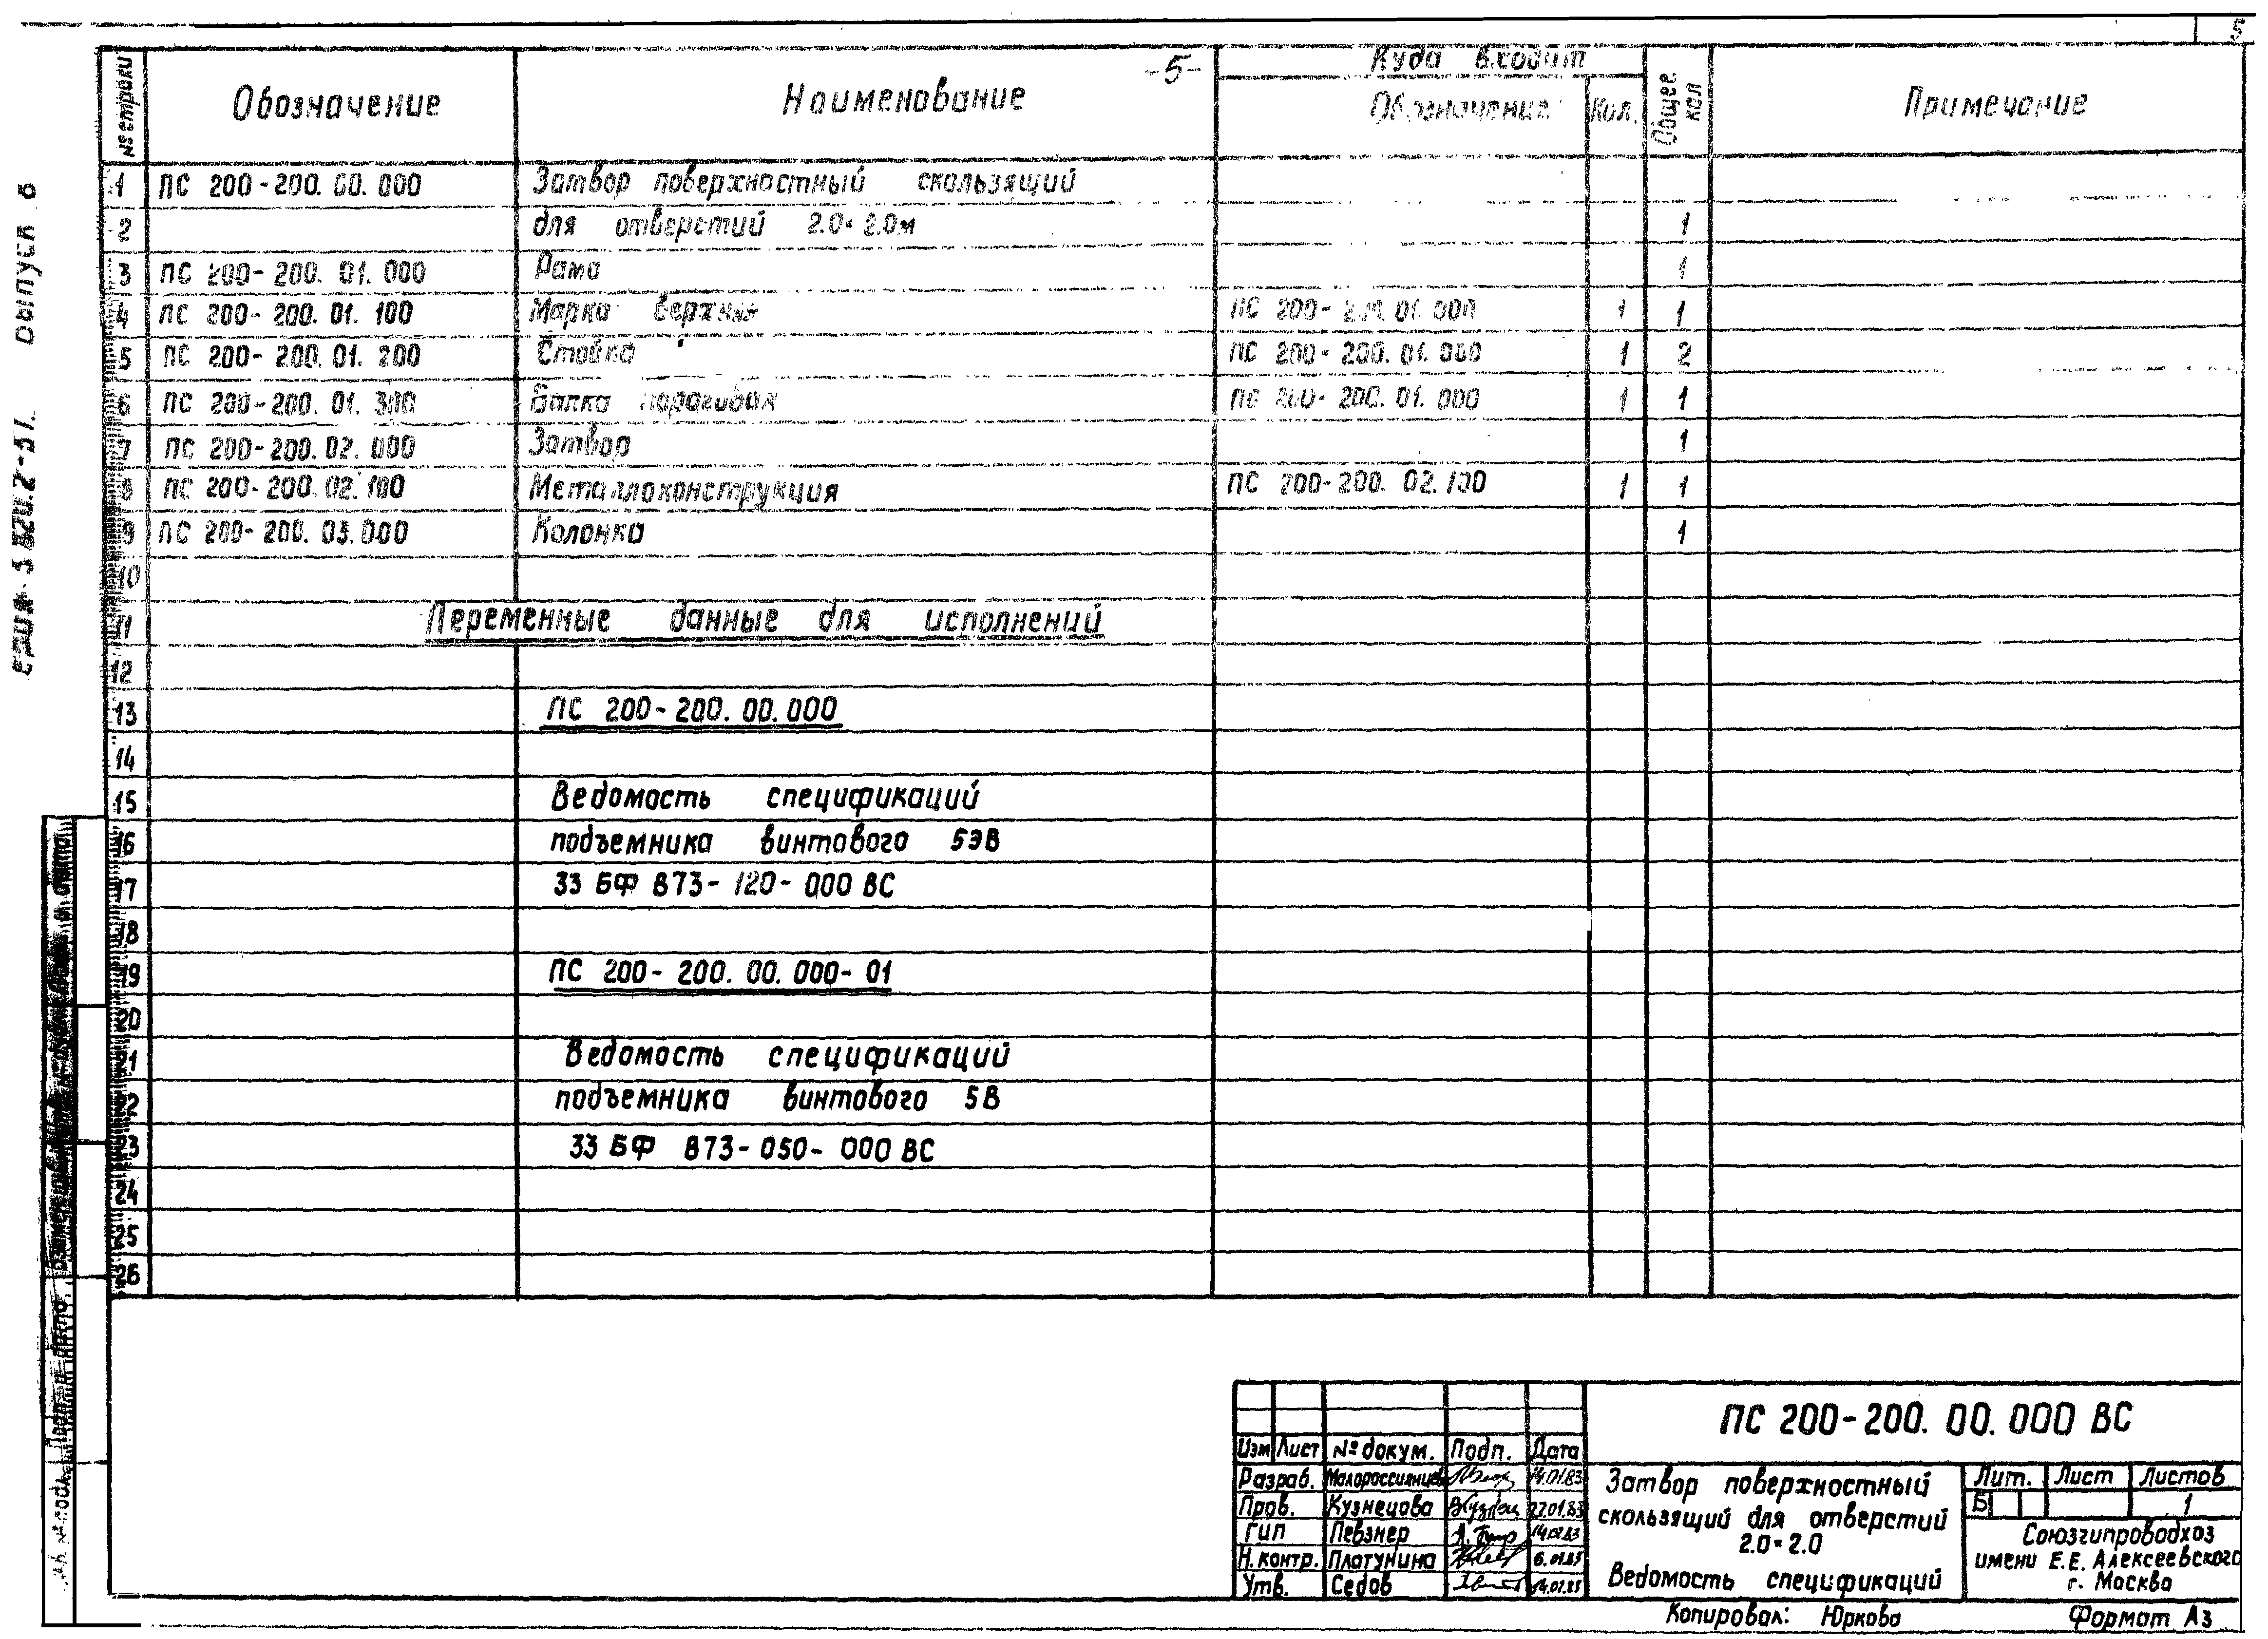 5
-5-
№ строки
Обозначение
Наименование
Куда входит
Обозначение
Кол.
Общее кол
Примечание
1 ПС 200-200.00.000 Затвор поверхностный скользящий
2 для отверстий 2.0×2.0м 1
3 ПС 200-200.01.000 Рама 1
4 ПС 200-200.01.100 Марка верхняя ПС 200-200.01.000 1 1
5 ПС 200-200.01.200 Стойка ПС 200-200.01.000 1 2
6 ПС 200-200.01.300 Балка пороговая ПС 200-200.01.000 1 1
7 ПС 200-200.02.000 Затвор 1
8 ПС 200-200.02.100 Металлоконструкция ПС 200-200.02.100 1 1
9 ПС 200-200.03.000 Колонка 1
10
11 Переменные данные для исполнений
12
13 ПС 200-200.00.000
14
15 Ведомость спецификаций
16 подъемника винтового 5ЭВ
17 33 БФ 873-120-000 ВС
18
19 ПС 200-200.00.000-01
20
21 Ведомость спецификаций
22 подъемника винтового 5В
23 33 БФ 873-050-000 ВС
24
25
26
выпуск 6
ПС 200-200.00.000 ВС
Изм Лист № докум. Подп. Дата
Разраб. 14.01.83
Пров. Кузнецова 27.01.83
ГИП Певзнер
Н.контр. Платунина
Утв. Седов
Затвор поверхностный
скользящий для отверстий
2.0×2.0
Ведомость спецификаций
Лит. Лист Листов
Б 1
Союзгипроводхоз
имени Е.Е. Алексеевского
г. Москва
Копировал: Юркова
Формат А3